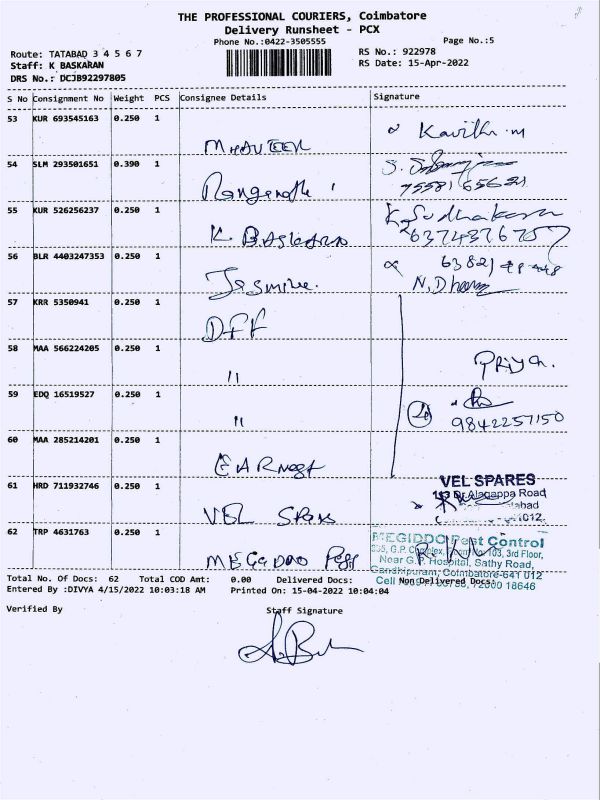 THE PROFESSIONAL COURIERS, Coimbatore
Delivery Runsheet - PCX
Phone No.:0422-3505555
Page No.:5
Route: TATABAD 3 4 5 6 7
Staff: K BASKARAN
DRS No.: DCJB92297805
RS No.: 922978
RS Date: 15-Apr-2022
S No Consignment No Weight PCS Consignee Details Signature
53 KUR 693545163 0.250 1
Kavitha.m
54 SLM 293501651 0.390 1
Ranganath
55 KUR 526256237 0.250 1
K. Sudhakaran
K BASKARAN
56 BLR 4403247353 0.250 1
Jasmine.
N. Dharm
57 KRR 5350941 0.250 1
DFF
58 MAA 566224205 0.250 1
"
Priya.
59 EDQ 16519527 0.250 1
"
9842257150
60 MAA 285214201 0.250 1
EARNest
61 HRD 711932746 0.250 1
VEL SPARES
Alagappa Road
VEL Spares
62 TRP 4631763 0.250 1
MEGIDDO Pest Control
G.P. Complex, 103, 3rd Floor,
Near G.P. Hospital, Sathy Road,
Gandhipuram, Coimbatore-641 012
Cell 72000 18646
MEGIDDO Pest
Total No. Of Docs: 62 Total COD Amt: 0.00 Delivered Docs: Non Delivered Docs:
Entered By :DIVYA 4/15/2022 10:03:18 AM Printed On: 15-04-2022 10:04:04
Verified By Staff Signature